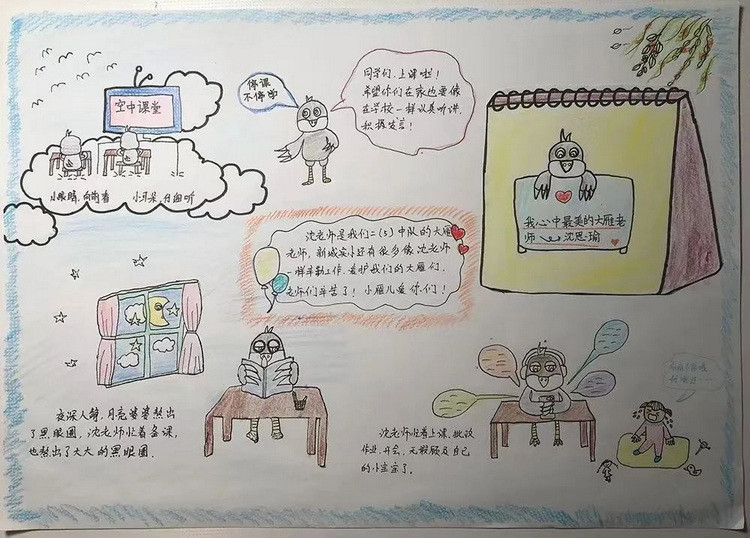 空中课堂
小眼睛,向前看 小耳朵,仔细听
停课
不停学
同学们,上课啦!
希望你们在家也要像
在学校一样认真听讲,
积极发言!
我心中最美的大雁老
师 沈思瑜
沈老师是我们二(5)中队的大雁
老师,新城实小还有很多像沈老师
一样辛勤工作、爱护我们的大雁们,
老师们辛苦了!小雁儿爱你们!
夜深人静,月亮婆婆熬出
了黑眼圈,沈老师忙着备课,
也熬出了大大的黑眼圈。
沈老师忙着上课、批改
作业、开会,无暇顾及自己
的小宝宝了。